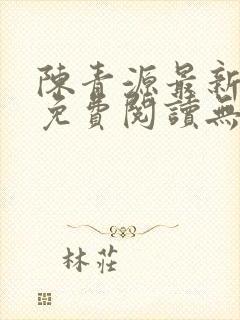 陳青源最新
免費閱讀無
林莊